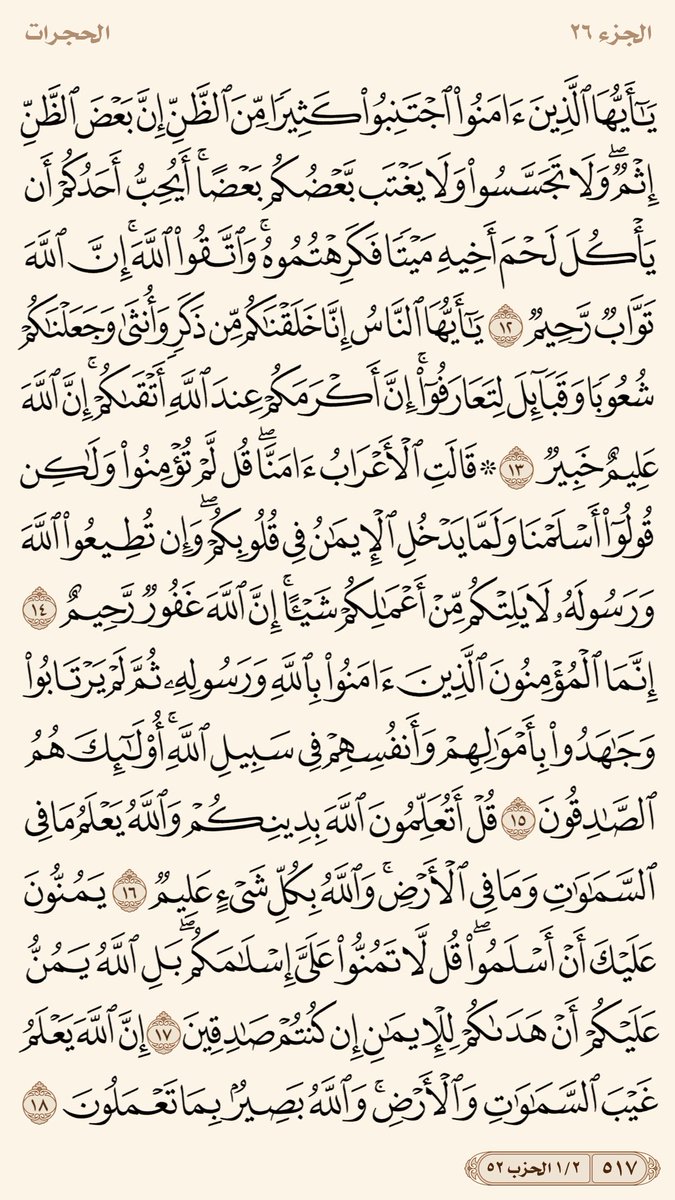 الجزء ٢٦
الحجرات
يَـٰٓأَيُّهَا ٱلَّذِينَ ءَامَنُوا۟ ٱجْتَنِبُوا۟ كَثِيرًا مِّنَ ٱلظَّنِّ إِنَّ بَعْضَ ٱلظَّنِّ
إِثْمٌ ۖ وَلَا تَجَسَّسُوا۟ وَلَا يَغْتَب بَّعْضُكُم بَعْضًا ۚ أَيُحِبُّ أَحَدُكُمْ أَن
يَأْكُلَ لَحْمَ أَخِيهِ مَيْتًا فَكَرِهْتُمُوهُ ۚ وَٱتَّقُوا۟ ٱللَّهَ ۚ إِنَّ ٱللَّهَ
تَوَّابٌ رَّحِيمٌ ١٢ يَـٰٓأَيُّهَا ٱلنَّاسُ إِنَّا خَلَقْنَـٰكُم مِّن ذَكَرٍ وَأُنثَىٰ وَجَعَلْنَـٰكُمْ
شُعُوبًا وَقَبَآئِلَ لِتَعَارَفُوٓا۟ ۚ إِنَّ أَكْرَمَكُمْ عِندَ ٱللَّهِ أَتْقَىٰكُمْ ۚ إِنَّ ٱللَّهَ
عَلِيمٌ خَبِيرٌ ١٣ ۞ قَالَتِ ٱلْأَعْرَابُ ءَامَنَّا ۖ قُل لَّمْ تُؤْمِنُوا۟ وَلَـٰكِن
قُولُوٓا۟ أَسْلَمْنَا وَلَمَّا يَدْخُلِ ٱلْإِيمَـٰنُ فِى قُلُوبِكُمْ ۖ وَإِن تُطِيعُوا۟ ٱللَّهَ
وَرَسُولَهُۥ لَا يَلِتْكُم مِّنْ أَعْمَـٰلِكُمْ شَيْـًٔا ۚ إِنَّ ٱللَّهَ غَفُورٌ رَّحِيمٌ ١٤
إِنَّمَا ٱلْمُؤْمِنُونَ ٱلَّذِينَ ءَامَنُوا۟ بِٱللَّهِ وَرَسُولِهِۦ ثُمَّ لَمْ يَرْتَابُوا۟
وَجَـٰهَدُوا۟ بِأَمْوَٰلِهِمْ وَأَنفُسِهِمْ فِى سَبِيلِ ٱللَّهِ ۚ أُو۟لَـٰٓئِكَ هُمُ
ٱلصَّـٰدِقُونَ ١٥ قُلْ أَتُعَلِّمُونَ ٱللَّهَ بِدِينِكُمْ وَٱللَّهُ يَعْلَمُ مَا فِى
ٱلسَّمَـٰوَٰتِ وَمَا فِى ٱلْأَرْضِ ۚ وَٱللَّهُ بِكُلِّ شَىْءٍ عَلِيمٌ ١٦ يَمُنُّونَ
عَلَيْكَ أَنْ أَسْلَمُوا۟ ۖ قُل لَّا تَمُنُّوا۟ عَلَىَّ إِسْلَـٰمَكُم ۖ بَلِ ٱللَّهُ يَمُنُّ
عَلَيْكُمْ أَنْ هَدَىٰكُمْ لِلْإِيمَـٰنِ إِن كُنتُمْ صَـٰدِقِينَ ١٧ إِنَّ ٱللَّهَ يَعْلَمُ
غَيْبَ ٱلسَّمَـٰوَٰتِ وَٱلْأَرْضِ ۚ وَٱللَّهُ بَصِيرٌۢ بِمَا تَعْمَلُونَ ١٨
٥١٧ ١/٢ الحزب ٥٢